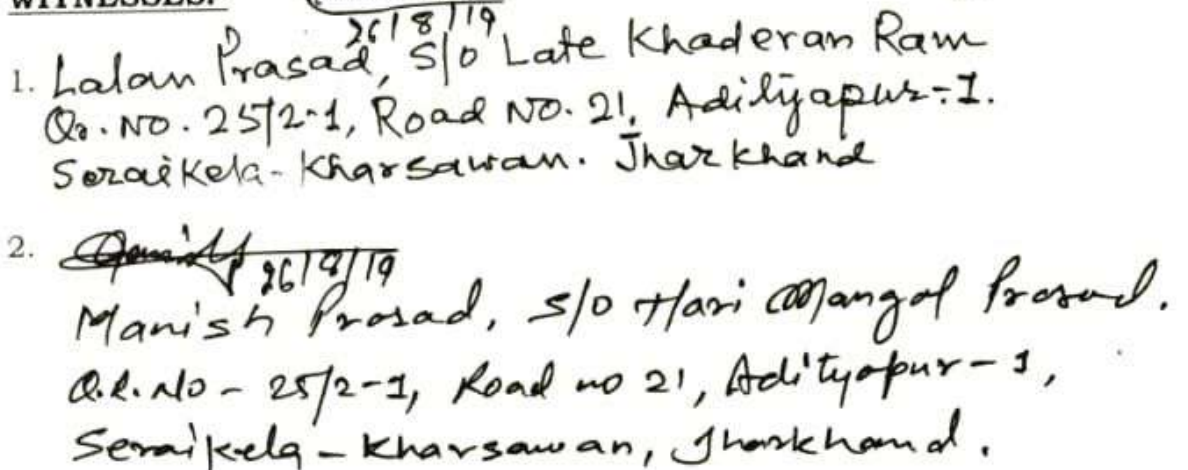 WITNESSES:
26/8/19
1. Lalan Prasad, S/o Late Khaderan Ram
Qr. No. 25/2-1, Road No. 21, Adityapur-1.
Seraikela-Kharsawan. Jharkhand
2.
26/8/19
Manish Prasad, S/o Hari Mangal Prasad.
Q.R. No - 25/2-1, Road no 21, Adityapur-1,
Seraikela - Kharsawan, Jharkhand.